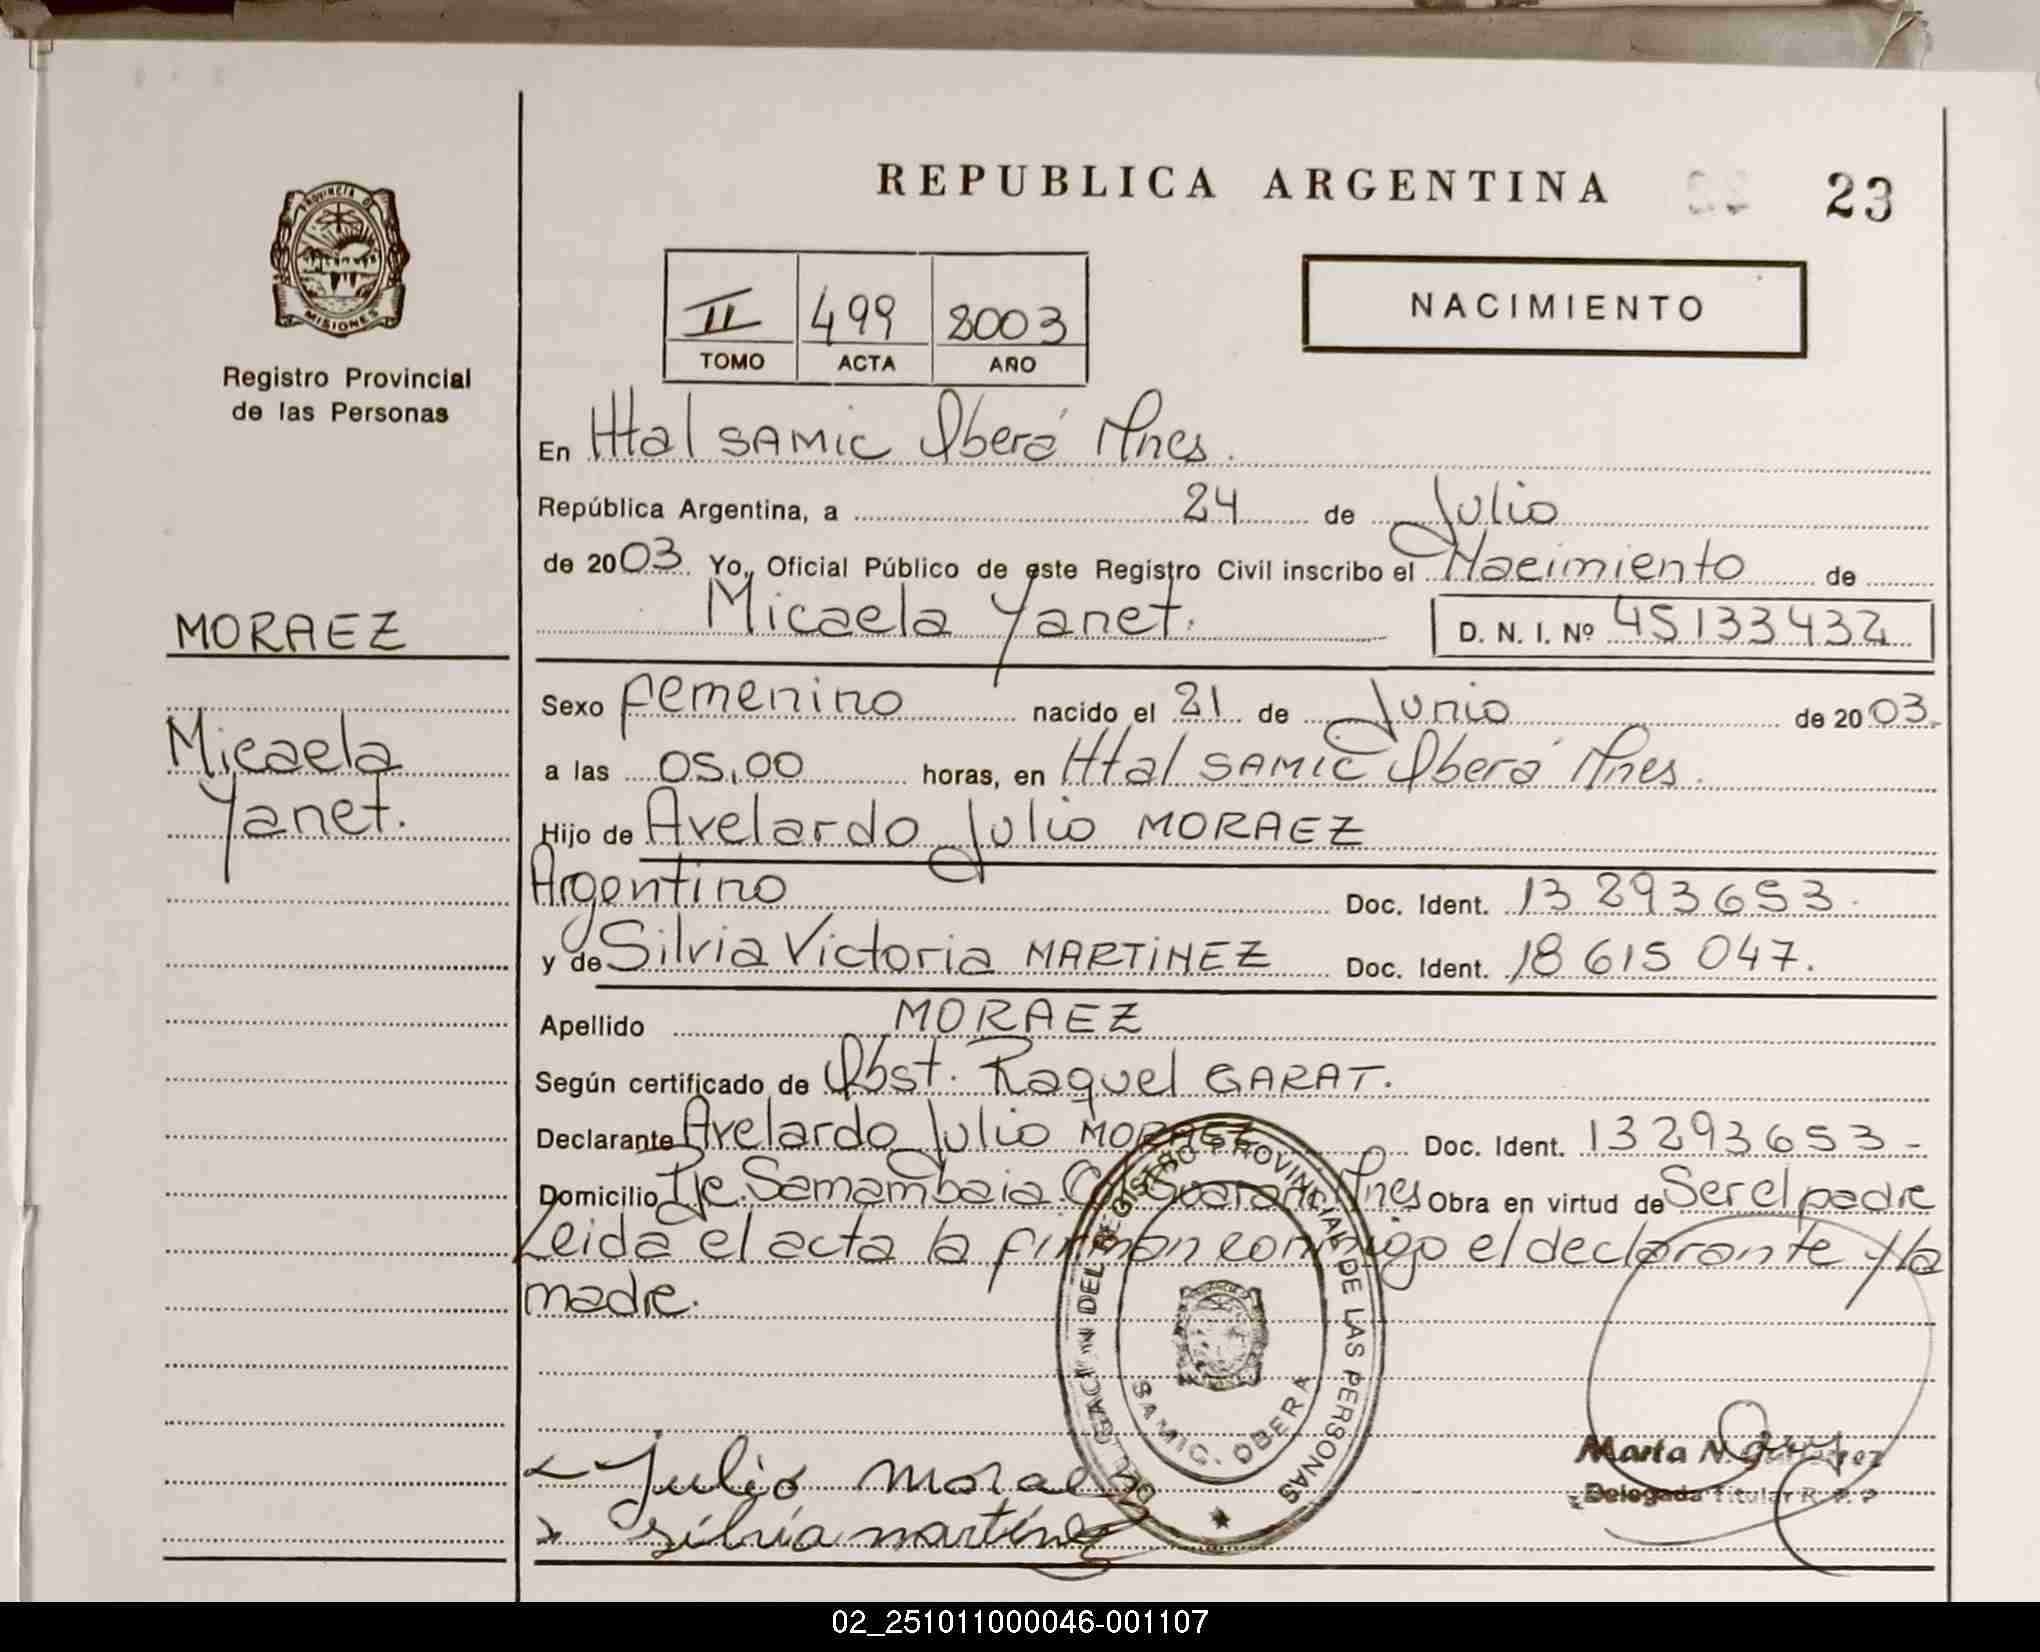 REPUBLICA ARGENTINA
23
PROVINCIA DE
MISIONES
Registro Provincial
de las Personas
II 499 2003
TOMO ACTA AÑO
NACIMIENTO
En Htal SAMIC Oberá Mnes.
República Argentina, a 24 de Julio
de 2003. Yo, Oficial Público de este Registro Civil inscribo el Nacimiento de
Micaela Yanet. D. N. I. Nº 45133432
MORAEZ
Micaela
Yanet.
Sexo Femenino nacido el 21 de Junio de 2003.
a las 05,00 horas, en Htal SAMIC Oberá Mnes.
Hijo de Avelardo Julio MORAEZ
Argentino Doc. Ident. 13 293653.
y de Silvia Victoria MARTINEZ Doc. Ident. 18 615 047.
Apellido MORAEZ
Según certificado de Obst. Raquel GARAT.
Declarante Avelardo Julio MORAEZ Doc. Ident. 13293653-
Domicilio Pje. Samambaia. Guaraní Mnes Obra en virtud de Ser el padre
Leida el acta la firman conmigo el declarante y la
madre.
DELEGACION DEL REGISTRO PROVINCIAL DE LAS PERSONAS
SAMIC. OBERA
Julio Moraez
silvia martinez
Marta N.
Delegada Titular R. P. P
02_251011000046-001107